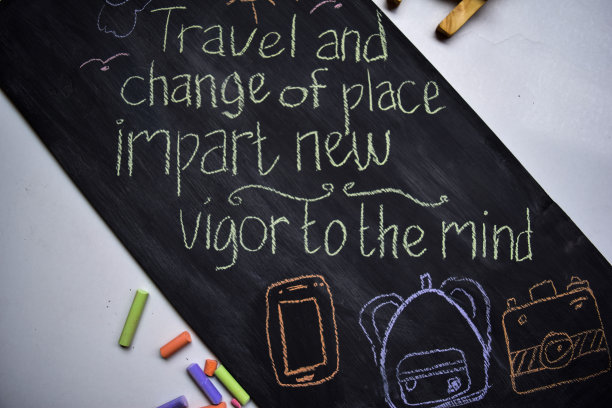 Travel and
change of place
impart new
vigor to the mind